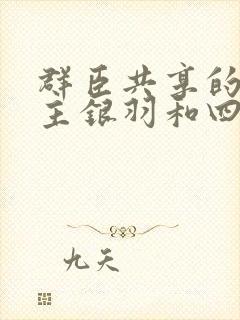 群臣共享的
主银羽和四
九天